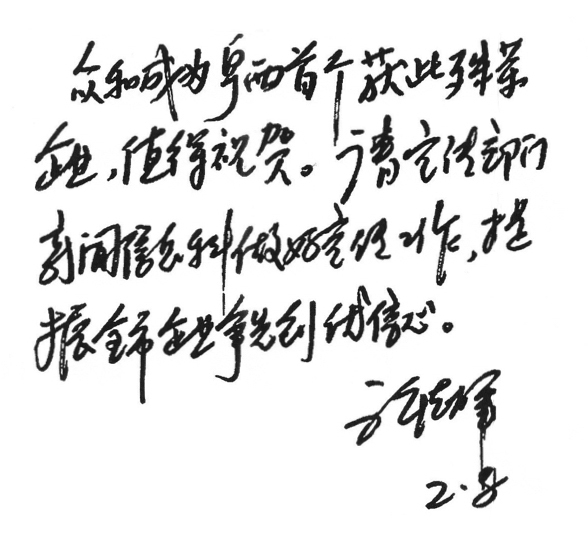 众和成为阜西首个获此殊荣
企业，值得祝贺。请宣传部门
新闻信息科做好宣传工作，提
振全市企业争先创优信心。
2.8